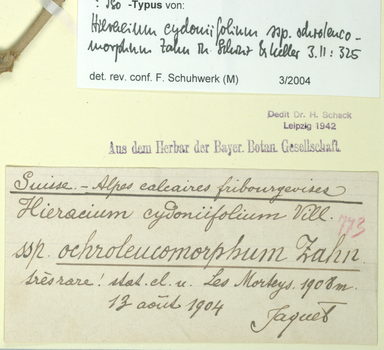 ? Iso -Typus von:
Hieracium cydoniifolium ssp. ochroleuco-
morphum Zahn in Schinz & Keller 3. II : 325
det. rev. conf. F. Schuhwerk (M) 3/2004
Dedit Dr. H. Schack
Leipzig 1942
Aus dem Herbar der Bayer. Botan. Gesellschaft.
Suisse. - Alpes calcaires fribourgeoises
Hieracium cydoniifolium Vill.
773
ssp. ochroleucomorphum Zahn.
très rare! stat. cl. u. Les Morteys. 1908m.
13 août 1904
Jaquet